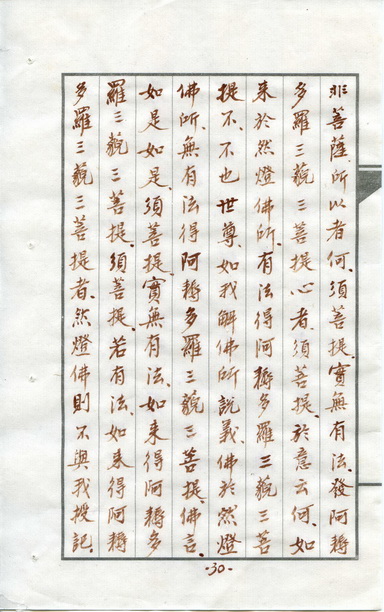 非菩薩所以者何、須菩提、實無有法、發阿耨
多羅三藐三菩提心者、須菩提、於意云何、如
来於然燈佛所、有法得阿耨多羅三藐三菩
提不、不也世尊、如我解佛所說義、佛於然燈
佛所、無有法得阿耨多羅三藐三菩提、佛言、
如是如是、須菩提、實無有法、如来得阿耨多
羅三藐三菩提、須菩提、若有法、如来得阿耨
多羅三藐三菩提者、然燈佛則不與我授記、
-30-